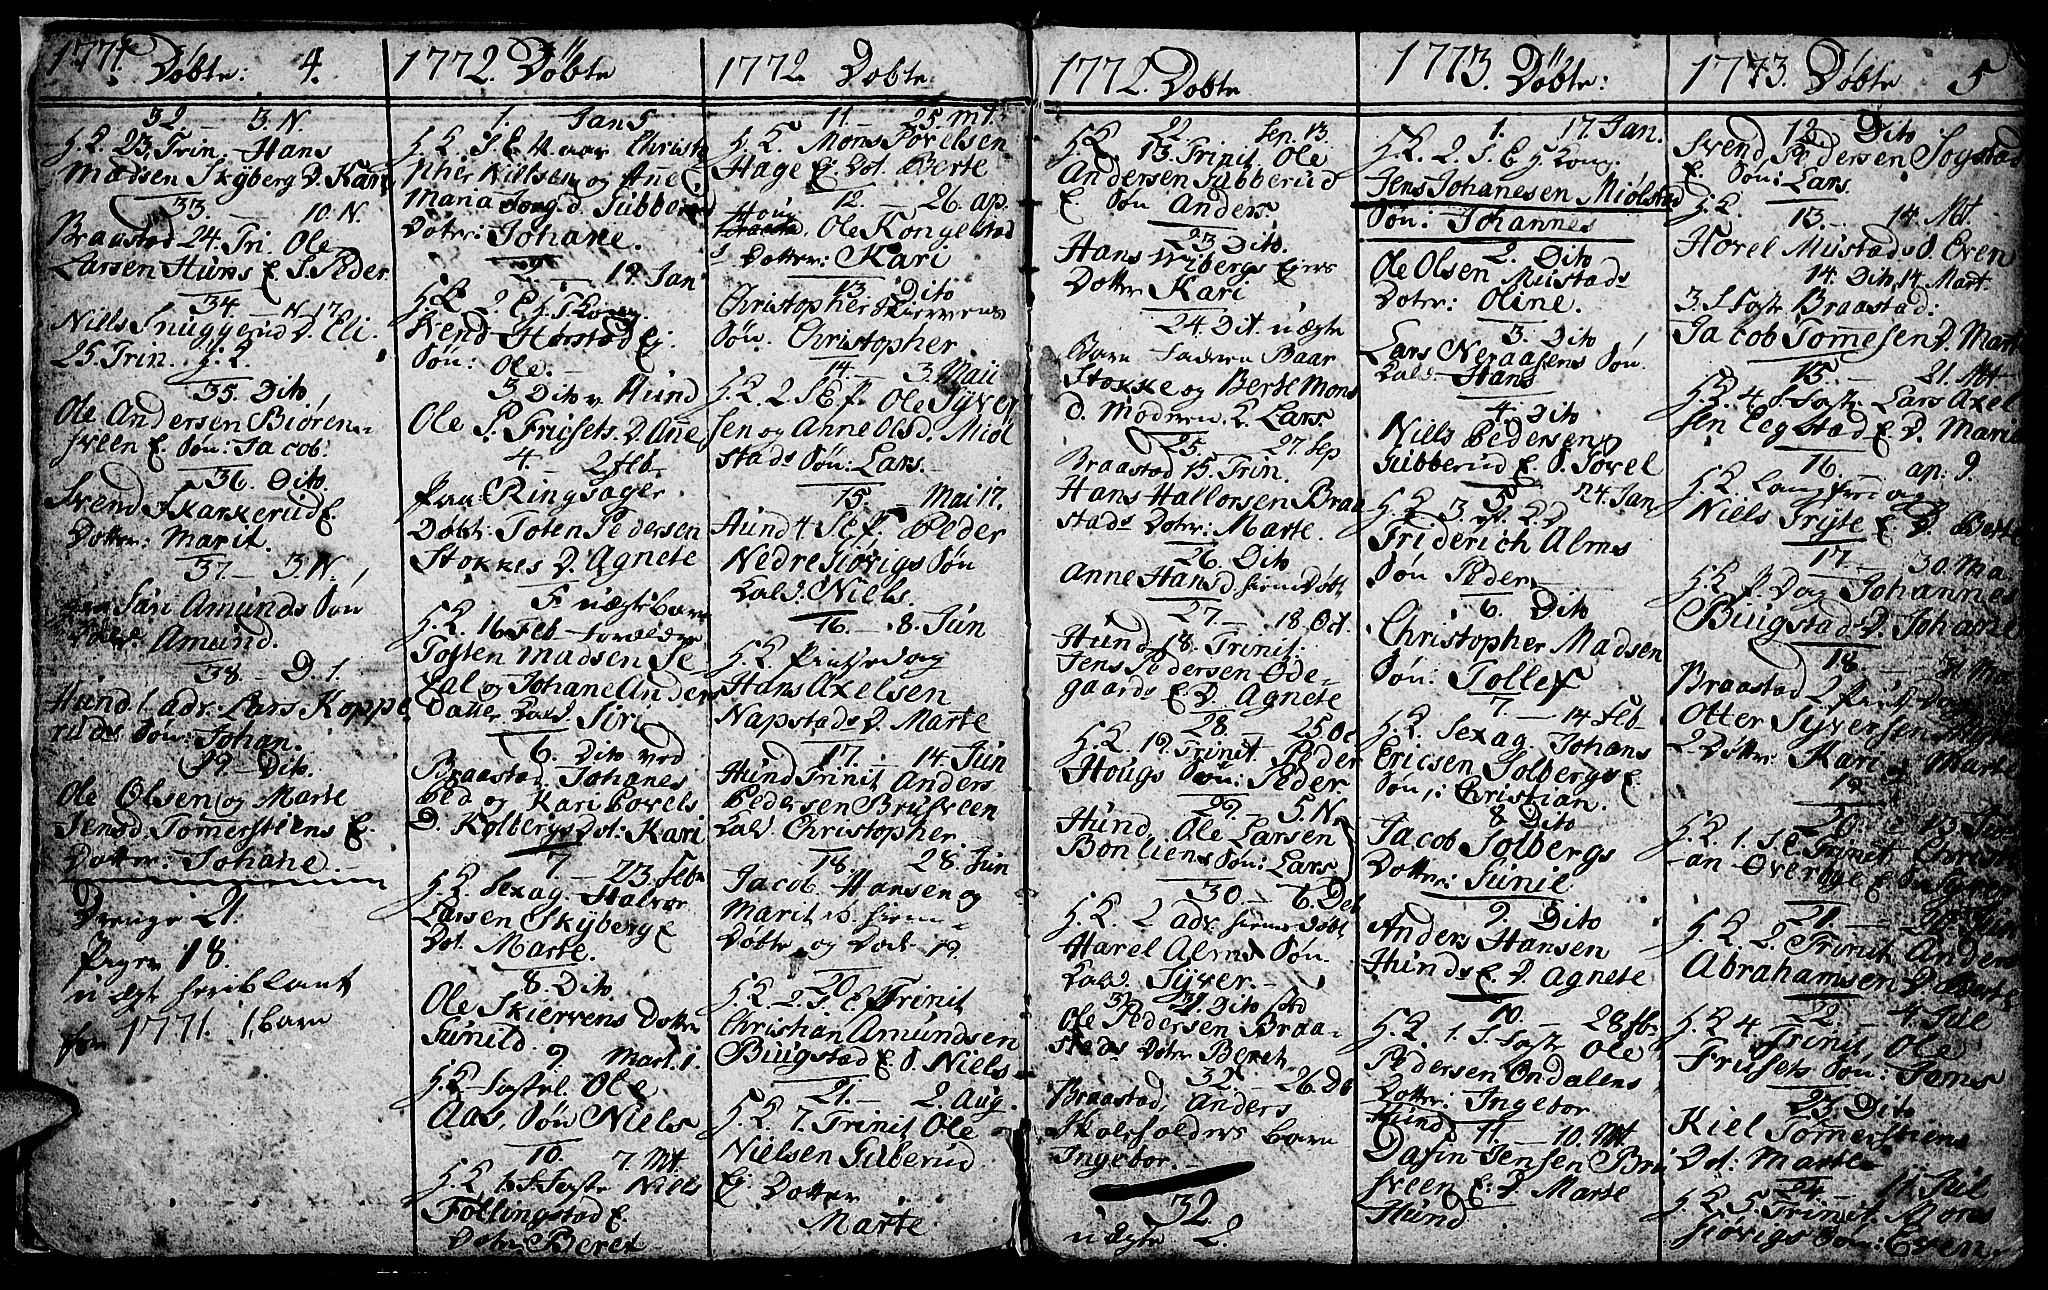 1771. Döbte: 4.
32 — 3. N.
H. K. 23. Trin. Hans
Madsen Skÿberg D. Kari
33. — 10. N.
Braastad 24. Tri. Ole
Larsen Huns E. S. Peder
34. — N. 17.
Nills Snuggerud D. Eli.
25. Trin. H. K.
35. Dito
Ole Andersen Biören-
sveen E. Sön: Jacob:
36. Dito.
Svend Skarkerud E.
Dotter: Marit.
37 — 3. N.
Amunds Sön
Amund.
38 — D. 1.
Hund 1. adv: Lars Koppe
ruds Sön: Johan.
39 — Dito.
Ole Olsen og Marte
Jensd. Tömerstiens E.
Dotter: Johane.
Drenge 21.
Piger 18.
u ægt heriblant
for 1771. 1. barn
1772. Döbte
1. Jan 5
H. K. S. E. N. aar Christo
pher Nillsen og Anne
Maria Jörg. d. Lubberud
Doter: Johane.
2 — 19. Jan
H. K. 2. E. H. 3 Kong.
Svend Horstad E.
Sön: Ole.
3 Dito v. Hund
Ole P. Frisets D. Anne
4. — 2 feb.
Paa Ringsager
Döbt: Toten Pedersen
Stokkes D. Agnete
5. uægte barn
H. K. 16 Feb. foreldre
Tosten Madsen Se
dal og Johane Anders
datter kald. Siri
6. Dito ved
Braastad Johanes
Ped og Kari Povels
D. Kolbergs Dot: Kari
7 — 23. Febr
H. K. Sexag. Halvor
Larsen Skÿberg E
Dot. Marte.
8. Dito
Ole Skiervens Dotter
Gunild.
9. Mart. 1.
H. K. faste. Ole
Aas, Sön Niels
10. 7. Mt
H. K. 1. S. faste Niels
Föllingstad E.
Doter Beret
1772. Döbte
11. — 25. Mt.
H. K. Mons Povelsen
Hage E. Dot. Berte
12. — 26. ap.
Houg
Braasta. Ole Kongelstad
s Dotter: Kari
13 Dito
Christopher Skiervens
Sön. Christopher
14. — 3. Maii
H. K. 2. S. E. P. Ole Syver
sen og Anne Olsd. Miöl
stads Sön: Lars.
15 — Mai 17.
Hund 4 S. E. P. Peder
Nedre Giövigs Sön
kald. Niels.
16 — 8. Jun
H. K. Pintsedag
Hans Axelsen
Napstads D. Marte
17. — 14. Jun
Hund Trinit Anders
Pedersen Brusveen
kald. Christopher
18. 28. Jun
Jacob Hansen og
Marit hiem
Döbte og Död. 19.
20.
H. K. 2. S. E. Trinit
Christian Amundsen
Bugstad E. S. Niels
21. — 2. Aug.
H. K. 7. Trinit Ole
Nielsen Gilberud
E. Dotter
Marte
1772. Döbte
22. Sep. 13
H. K. 13. Trinit. Ole
Andersen Lubberud
E. Sön Anders.
23 Dito.
Hans Vibergs Eiers
Dotter Kari
24. Dit. uægte
Barn fadren Baar
Stokke og Berte Mons
d. Modren K. Lars.
25. — 27. Sep
Braastad 15. Trin.
Hans Hallorsen Braa
stads Doter: Marte.
26. Dito
Anne Hansd. hiemDöbt
27 — 18. Oct.
Hund 18. Trinit.
Jens Pedersen Öde-
gaards E. D. Agnete
28. — 25 Oc.
H. K. 19. Trinit. Peder
Hougs Sön: Peder
29. 5. N.
Hund, Ole Larsen
Bonliens Sön: Lars
30. — 6. Dec
H. K. 2 adv. hiemeDöbt
Harel Alms Sön.
kald. Syver. —
31. Dito
Ole Pedersen Braa-
stads Doter Beret
32. — 26. De
Braastad, Anders
Skoleholders barn
Ingebor. —
32.
uægte 2.
1773. Döbte:
1. 17. Jan.
H. K. 2. S. E. H. Kong.
Jens Johanesen Miölstad
Sön: Johannes
2. Dito
Ole Olsen Mustads
Doter: Oline.
3. Dito
Lars Neraasens Sön.
kald. Hans
4. Dito
Niells Pedersen
Gubberud E. S. Povel
5. 24. Jan
H. K. 3.
Friderich Alms
Sön Peder
6. Dito
Christopher Madsen
Sön: Tollef
7. — 14 feb
H. K. Sexag. Johans
Ericsen Solbergs E.
Sön: Christian.
8. Dito
Jacob Solbergs
Dotter: Gunil
9. Dito
Anders Hansen
Hunds E. D. Agnete
10. — 28 fb:
H. K. 1. S. faste Ole
Pedersen Ondalens
Dotter: Ingebor
Hund
11. — 10. Mt
Dafin Jensen Bru
sveen E. D. Marte
Hund
1773. Döbte 5
12 — Dito
Svend Pedersen Sogstad
E. Sön: Lars.
H. K. 13. — 14. Mt.
Horel Mustads S. Even
14. Dito, 14. Mart.
3. S. faste Braastad:
Jacob Tomesen D. Marte
15. — 21. Mt
H. K. 4. S. faste Lars Axel
sen Eegstad E. D. Maria
16. — ap: 9.
H. K. Langfredag
Niels Tryte E. D. Berte
17. — 30. Ma.
H. K. P. Dag Johannes
Bugstads D. Johane
18. — 31 Ma
Braastad 2 Pints Dag
Otter Syversen
2 Dötter: Kari og Marte
19
20. — 13 Jun
H. K. 1. S. E. Trinit. Christi
an Överbye E. Sön Syver
21. — 20. Jun
H. K. 2. Trinit Anders
Abrahamsen D. Berte
22. — 4. Jul
H. K. 4. Trinit Ole
Frusets Sön: Tomes
23. Dito
Kiel Tömerstiens
Dot: Marte
24 — 11. Jul
H. K. 5. Trinit Mons
Giövigs Sön: Even.